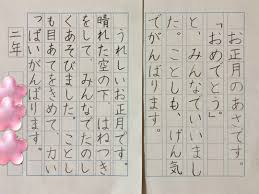 お正月のあさです。
「おめでとう」
と、みんなでいいまし
た。ことしも、げん気
でがんばります。
うれしいお正月です。
晴れた空の下、はねつき
をして、みんなでたのし
くあそびました。ことし
も目あてをきめて、力い
っぱいがんばります。
二年